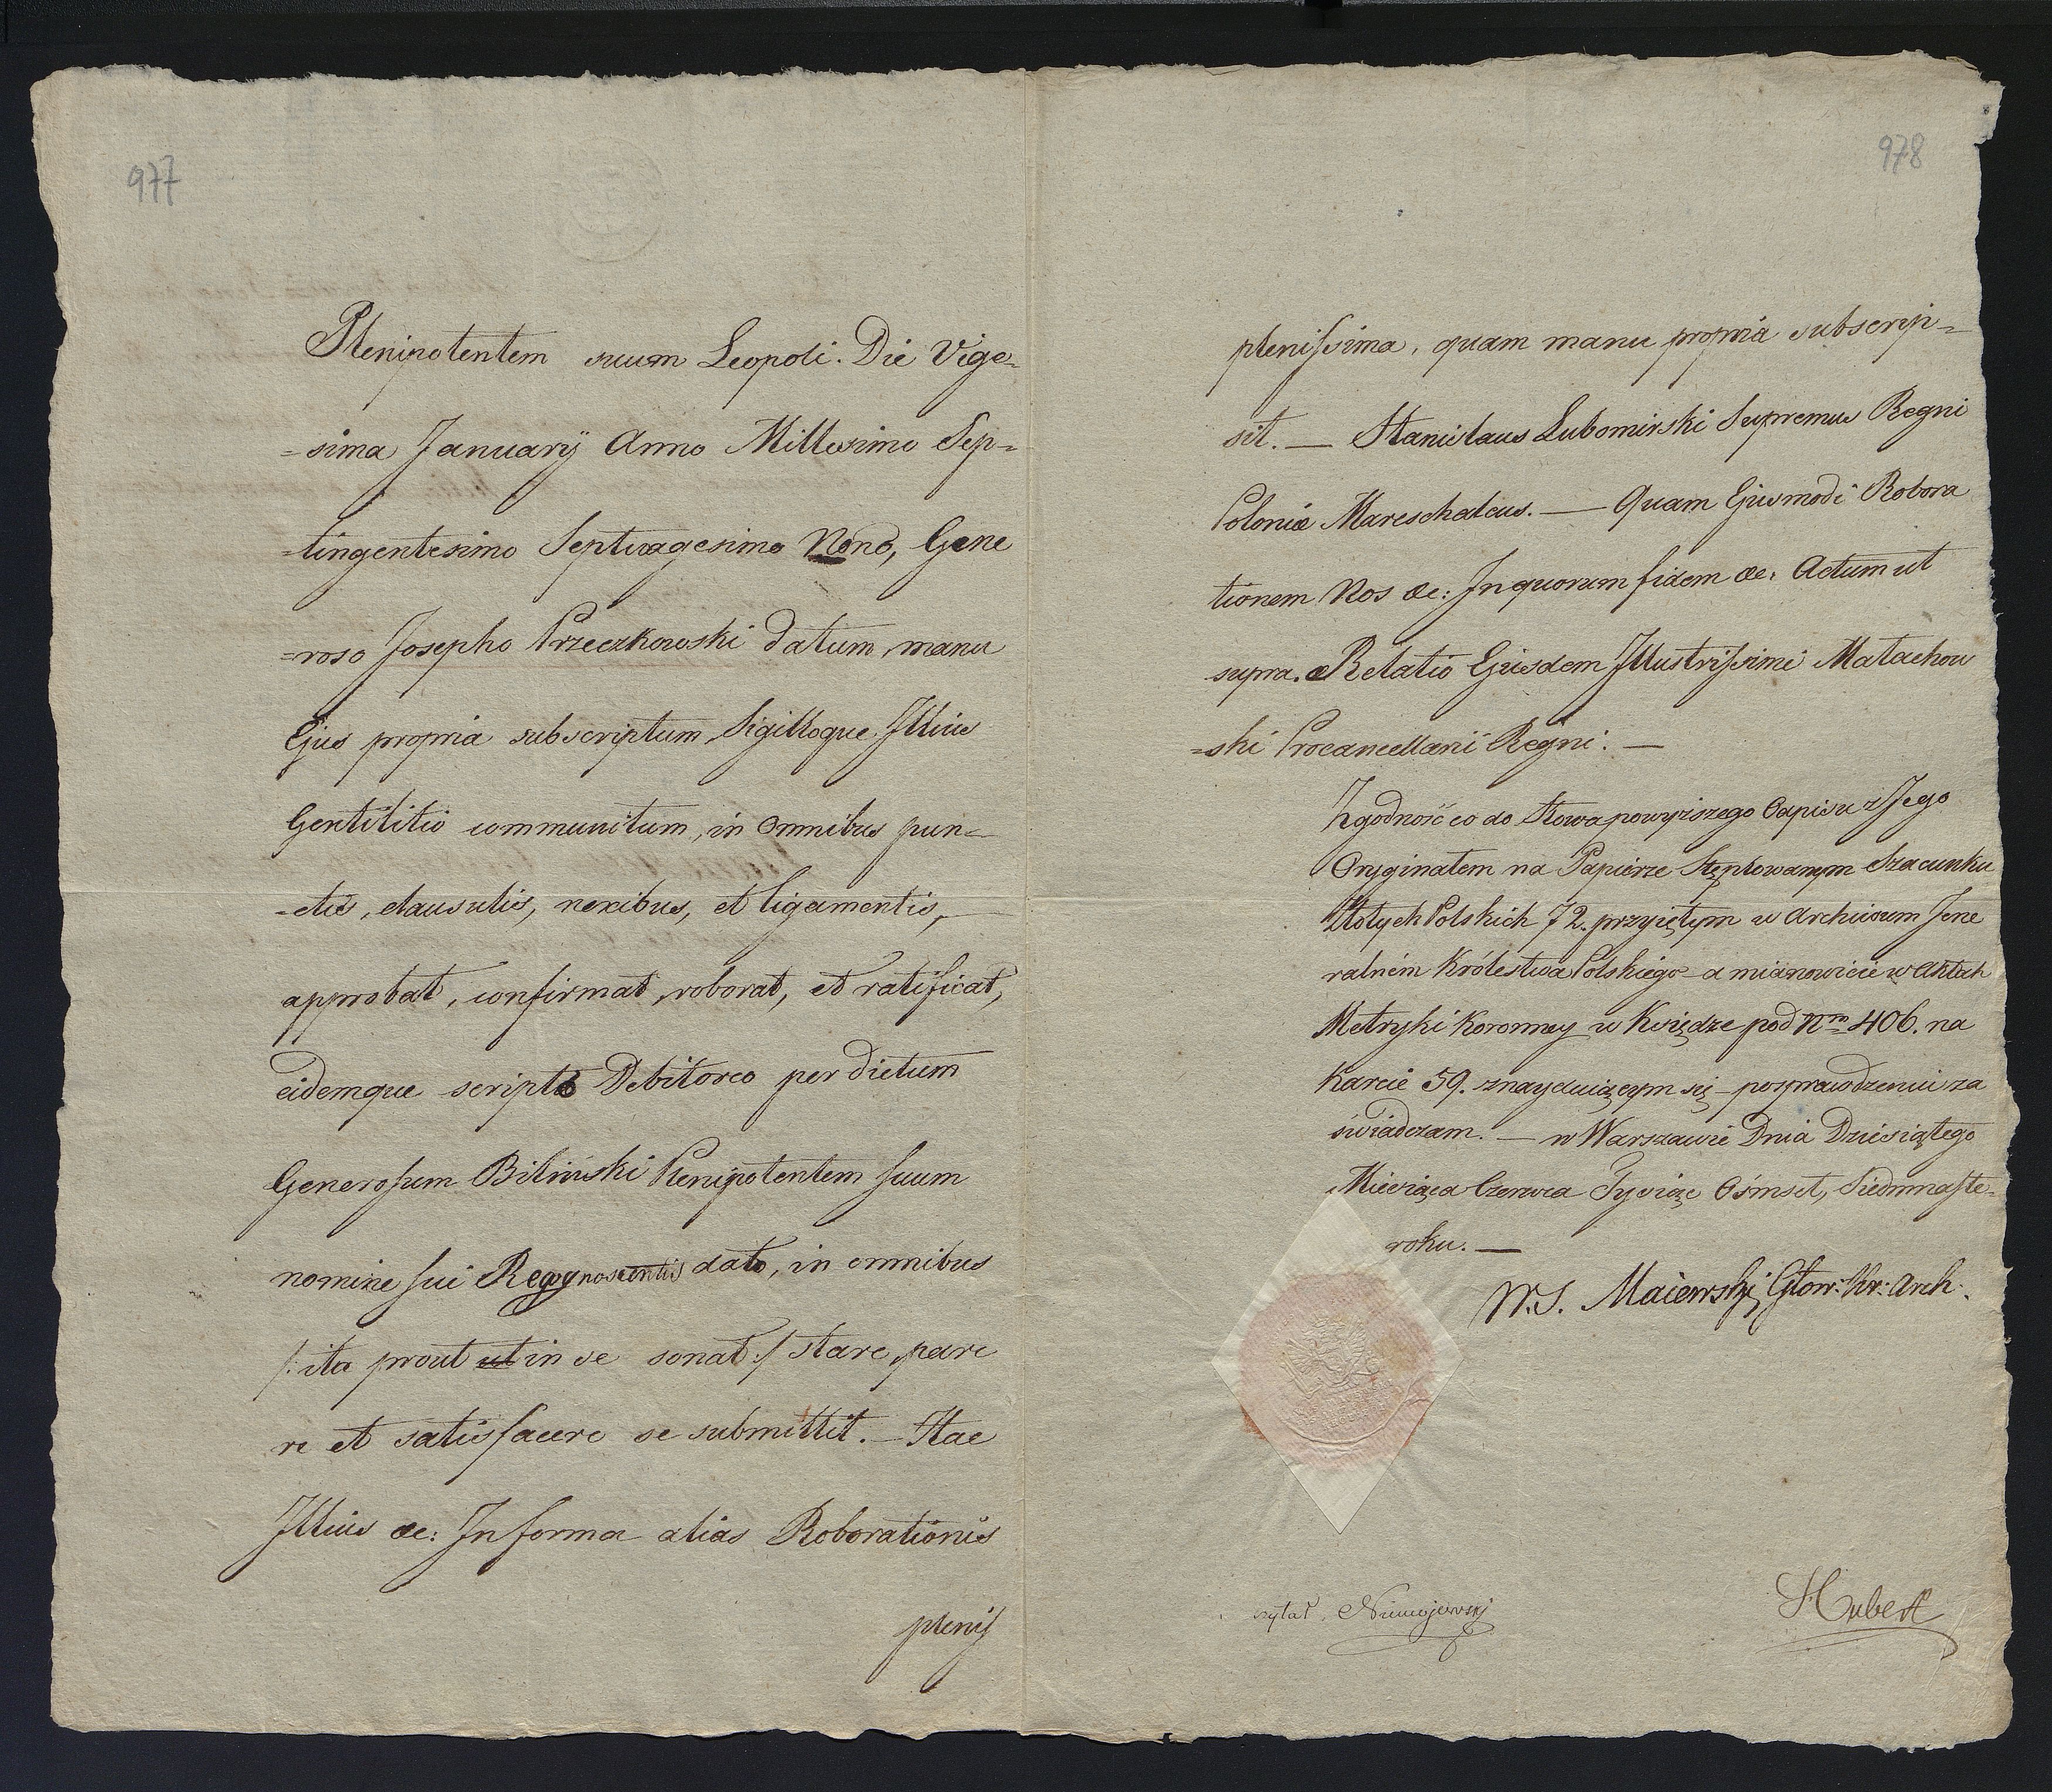 977
Plenipotentem suum Leopoli. Die Vige=
=sima Januarÿ Anno Millesimo Sep=
=tingentesimo Septuagesimo Nono, Gene
=roso Josepho Przeczkowski datum, manu
Ejus propria subscriptum, Sigilloque Illius
Gentilitio communitum, in omnibus pun=
=ctis, clausulis, nexibus, et ligamentis,
approbat, confirmat, roborat, et ratificat,
eidemque scripto Debitoreo per dictum
Generosum Biliński Plenipotentem suum
nomine sui Recognoscentis dato, in omnibus
/: ita prout ut in se sonat :/ stare, pare
re et satisfacere se submittit. — Hac
Illius &c: In forma alias Roborationis
plenis
978
plenissima, quam manu propria subscrip=
sit. — Stanislaus Lubomirski Supremus Regni
Poloniæ Mareschalcus. — Quam Ejusmodi Robora
tionem Nos &c: In quorum fidem &c: Actum ut
supra. Relatio Ejusdem Illustrissimi Małachow
=ski Procancellarii Regni. —
Zgodność co do Słowa powyższego Oapisu z Jego
Oryginałem na Papierze Stęplowanym Szacunku
Złotych Polskich 72. przyiętym w Archiwum Jene
ralném Królestwa Polskiego a mianowicie w Aktach
Metryki Koronney w Księdze pod Nrm 406. na
karcie 59. znayduiącym się po sprawdzeniu za
świadczam. — w Warszawie Dnia Dziesiątego
Miesiąca Czerwca Tysiąc Ośmset, Siedmnaste=
roku. —
W. S. Maiewski, Głow: Kr: Arch:
czytał, Niemojewski
Hubert